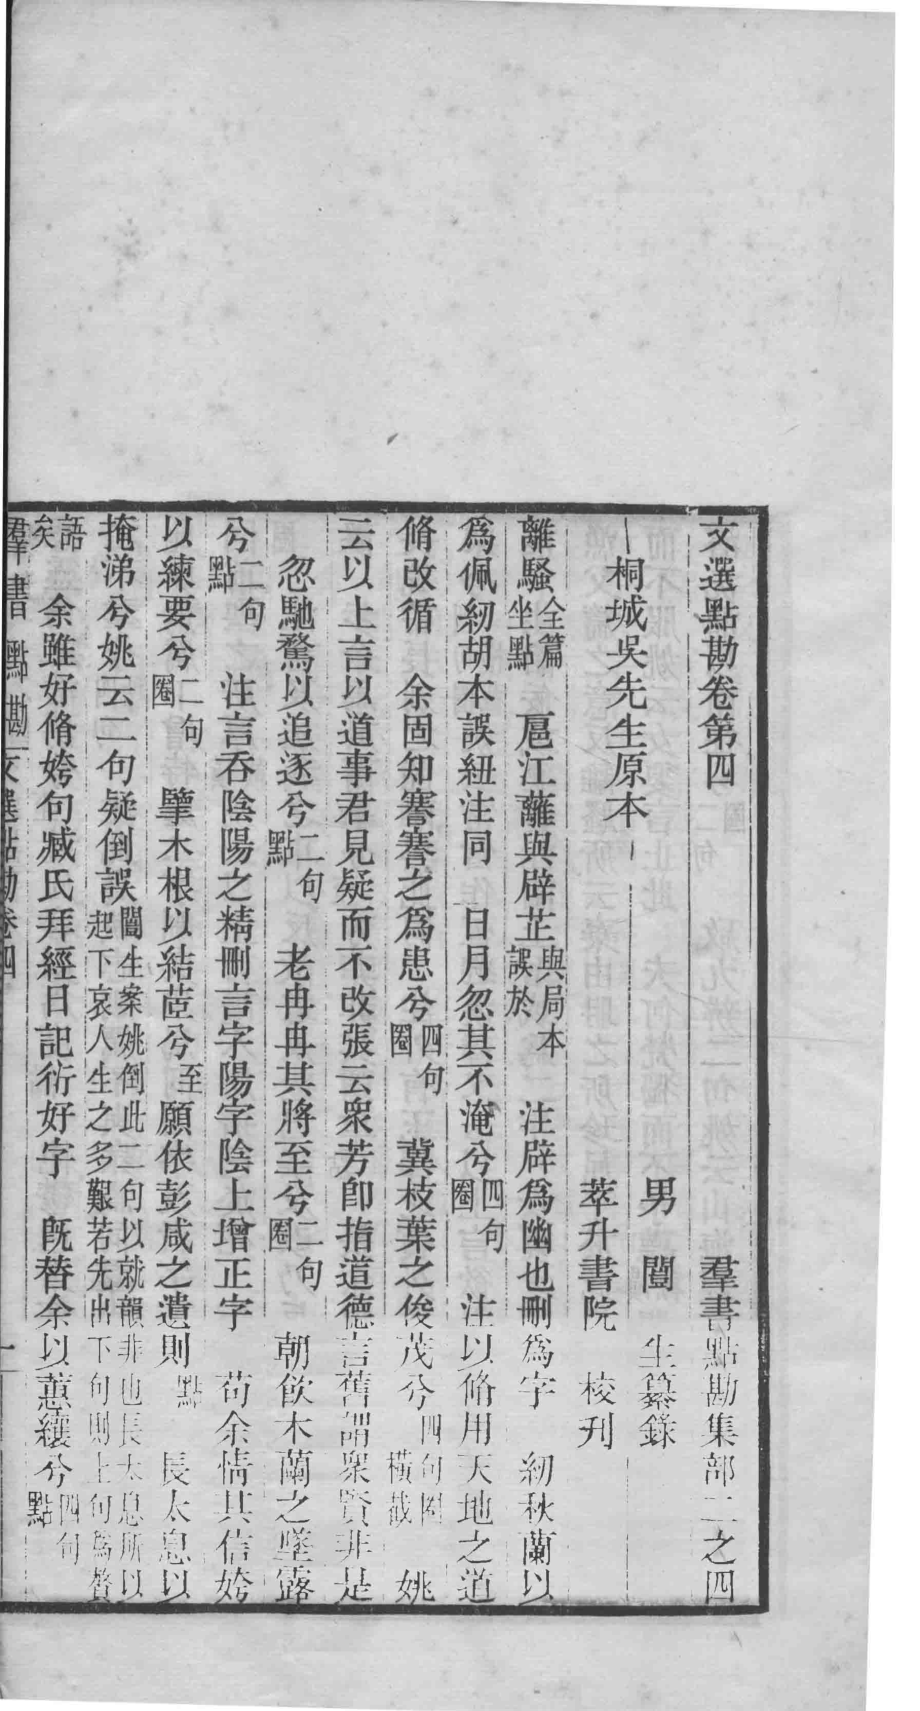 文選點勘卷第四　羣書點勘集部二之四
桐城吳先生原本　男　闓　生纂錄
萃升書院　校刊
離騷全篇坐點　扈江蘺與辟芷與局本誤於　注辟爲幽也刪爲字　紉秋蘭以
爲佩紉胡本誤紐注同　日月忽其不淹兮四句圈　注以脩用天地之道
脩改循　余固知謇謇之爲患兮四句圈　冀枝葉之俊茂兮四句圈橫截　姚
云以上言以道事君見疑而不改張云衆芳卽指道德言舊謂衆賢非是
忽馳騖以追逐兮二句點　老冉冉其將至兮二句圈　朝飲木蘭之墜露
兮二句點　注言吞陰陽之精刪言字陽字陰上增正字　苟余情其信姱
以練要兮二句圈　擥木根以結茝兮至願依彭咸之遺則點　長太息以
掩涕兮姚云二句疑倒誤闓生案姚倒此二句以就韻非也長太息所以起下哀人生之多艱若先出下句則上句爲贅
語矣　余雖好脩姱句臧氏拜經日記衍好字　旣替余以蕙纕兮四句點
羣書點勘　文選點勘卷四　一